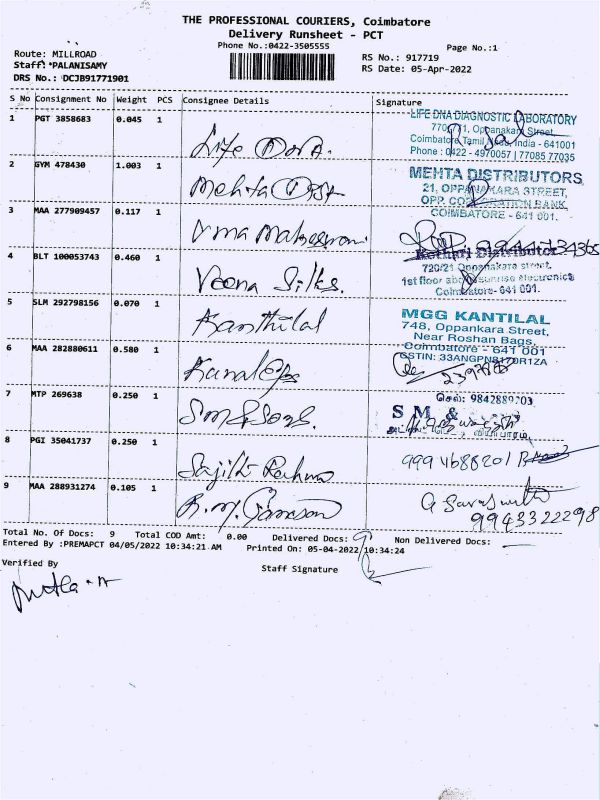 THE PROFESSIONAL COURIERS, Coimbatore
Delivery Runsheet - PCT
Phone No.:0422-3505555
Page No.:1
Route: MILLROAD
Staff: *PALANISAMY
DRS No.: DCJB91771901
RS No.: 917719
RS Date: 05-Apr-2022
S No Consignment No Weight PCS Consignee Details Signature
1 PGT 3858683 0.045 1 Life DNA.
LIFE DNA DIAGNOSTIC LABORATORY
770/71, Oppanakara Street,
Coimbatore, Tamil Nadu, India - 641001
Phone : 0422 - 4970057 | 77085 77035
2 GYM 478430 1.003 1 Mehta Dist
MEHTA DISTRIBUTORS
21, OPPANAKARA STREET,
OPP. CORPORATION BANK,
COIMBATORE - 641 001.
3 MAA 277909457 0.117 1 Uma Maheswari
4 BLT 100053743 0.460 1 Veena Silks.
Kothari Distributor
720/21 Oppanakara street,
1st floor above sunrise electronics
Coimbatore- 641 001.
5 SLM 292798156 0.070 1 Kanthilal
MGG KANTILAL
748, Oppankara Street,
Near Roshan Bags,
Coimbatore - 641 001
6 MAA 282880611 0.580 1
7 MTP 269638 0.250 1 SM & Sons.
செல்: 9842889203
S M &
8 PGI 35041737 0.250 1
9994688201
9 MAA 288931274 0.105 1
9943322298
Total No. Of Docs: 9 Total COD Amt: 0.00 Delivered Docs: 9 Non Delivered Docs:
Entered By :PREMAPCT 04/05/2022 10:34:21 AM Printed On: 05-04-2022 10:34:24
Verified By
Staff Signature